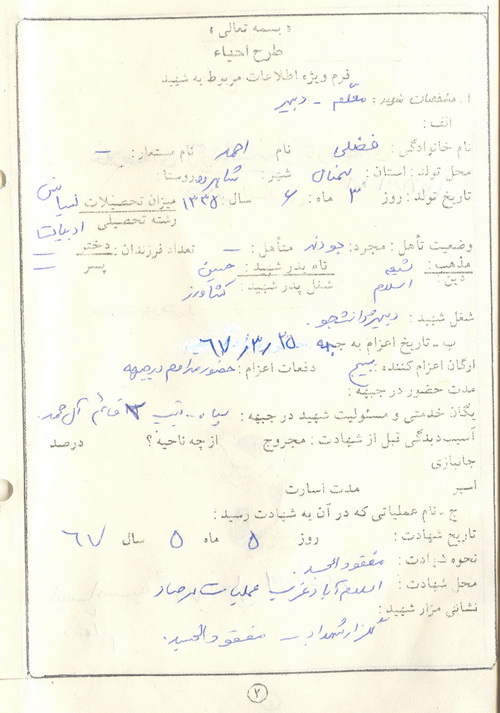 « بسمه تعالی »
طرح احیاء
فرم ویژه اطلاعات مربوط به شهید
۱. مشخصات شهید : معلم - دبیر
الف :
نام خانوادگی : فضلی نام احمد نام مستعار : –
محل تولد : استان : سمنان شهر : شاهرود روستا :
تاریخ تولد : روز ۳ ماه : ۶ سال : ۱۳۳۵ میزان تحصیلات لیسانس
رشته تحصیلی ادبیات
وضعیت تأهل : مجرد : بودند متأهل : – تعداد فرزندان : دختر –
مذهب : شیعه نام پدر شهید : حسین پسر –
دین : اسلام شغل پدر شهید : کشاورز
شغل شهید : دبیر و دانشجو
ب - تاریخ اعزام به جبهه ۶۷/۳/۲۵
ارگان اعزام کننده : بسیج دفعات اعزام : حضور مداوم در جبهه
مدت حضور در جبهه :
یگان خدمتی و مسئولیت شهید در جبهه : سپاه - تیپ ۱۲ قائم آل محمد
آسیب دیدگی قبل از شهادت : مجروح از چه ناحیه ؟ درصد
جانبازی
اسیر مدت اسارت
ج - نام عملیاتی که در آن به شهادت رسید :
تاریخ شهادت : روز ۵ ماه ۵ سال ۶۷
نحوه شهادت : مفقودالجسد
محل شهادت : اسلام آباد غرب عملیات مرصاد
نشانی مزار شهید :
گلزار شهداء - مفقودالجسد
۲